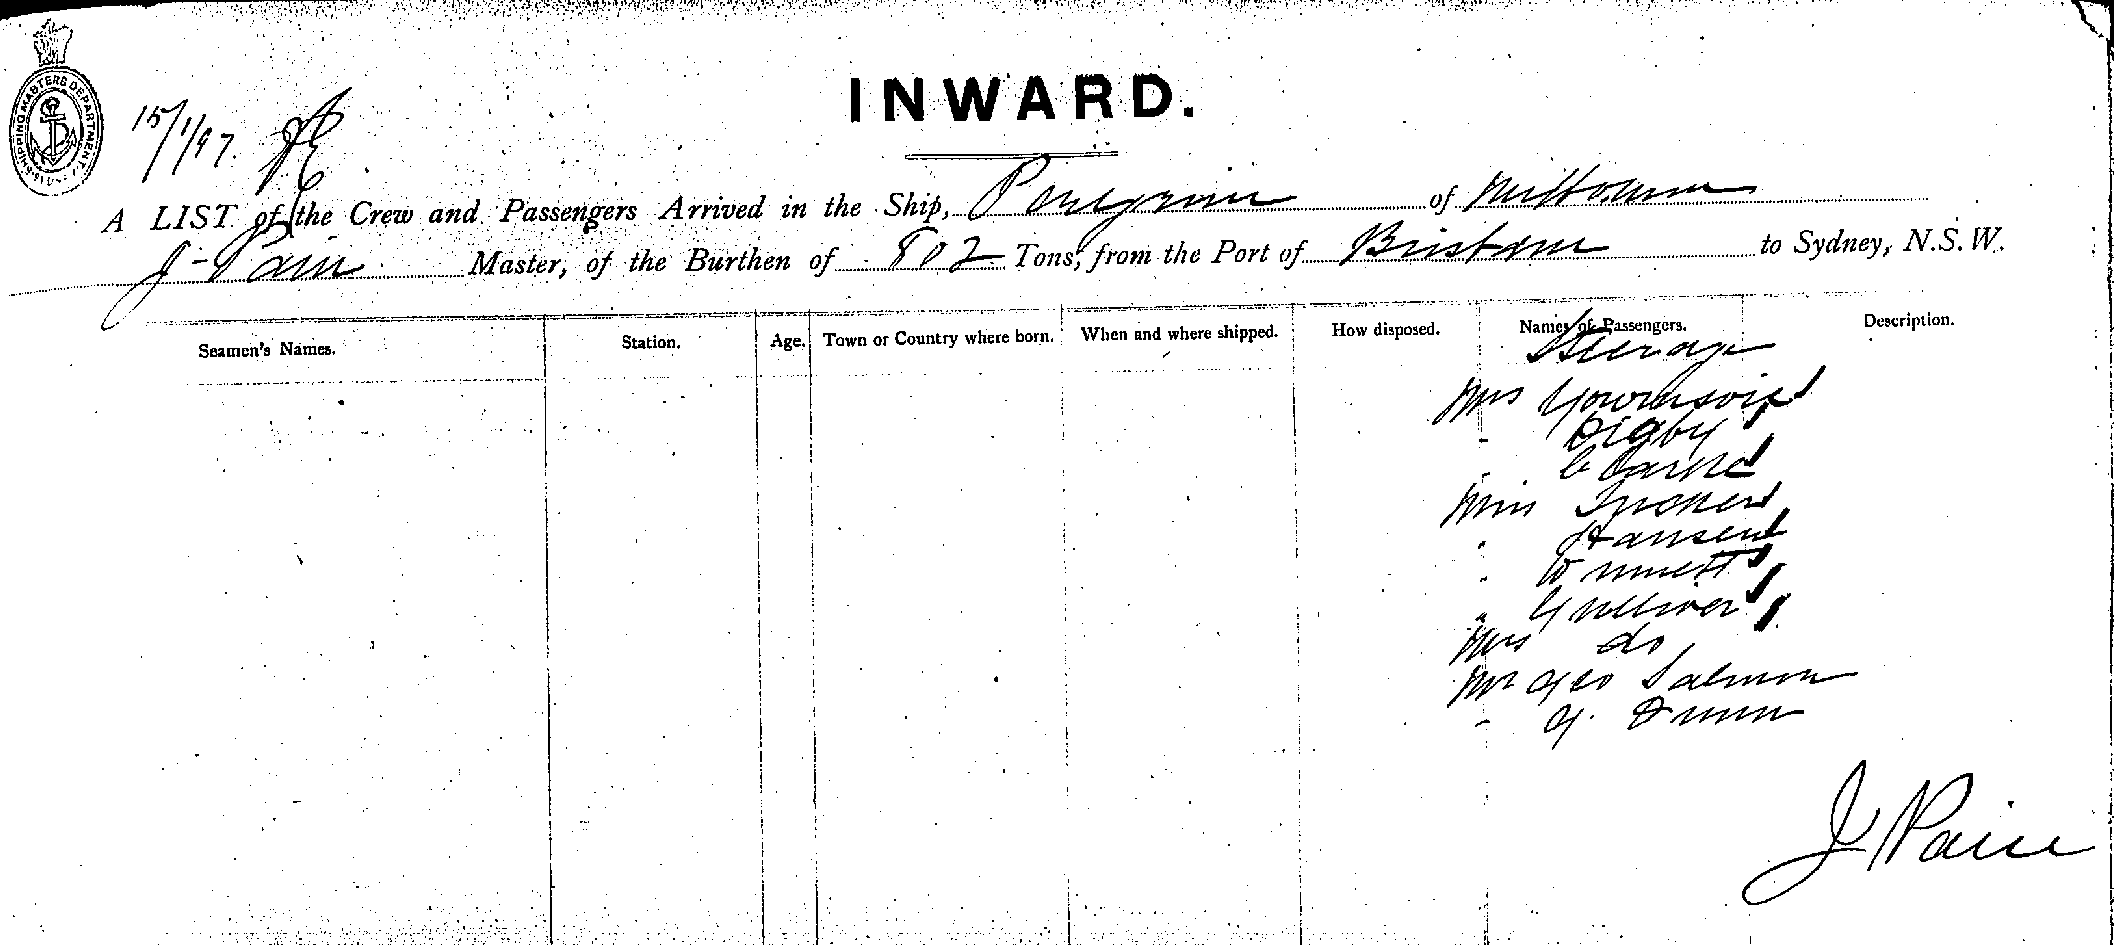 SHIPPING MASTERS DEPARTMENT
INWARD.
15/1/97.
A LIST of the Crew and Passengers Arrived in the Ship, Peregrine of Melbourne
J Pain Master, of the Burthen of 802 Tons, from the Port of Brisbane to Sydney, N.S.W.
Seamen's Names. Station. Age. Town or Country where born. When and where shipped. How disposed. Names of Passengers. Description.
Steerage
Mrs
" Digby
" Clarke
Miss Tucker
" Hansen
"
" Gulliver
Mrs do
Mr Geo Salmon
" G. Dunn
J Pain